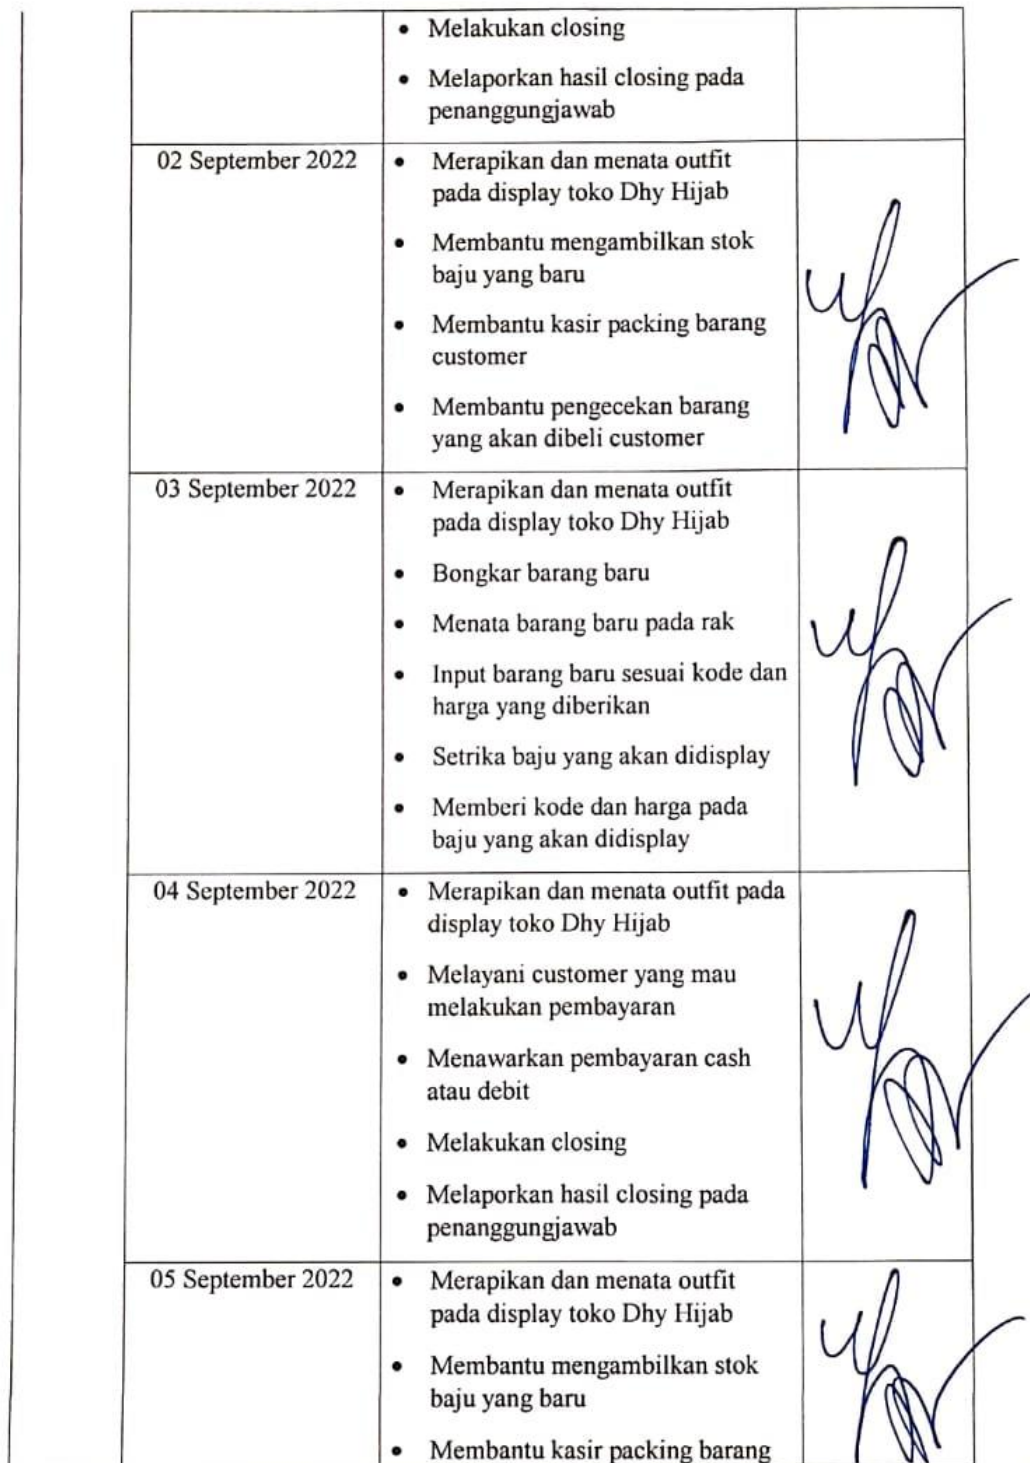 Melakukan closing
Melaporkan hasil closing pada
penanggungjawab
02 September 2022
Merapikan dan menata outfit
pada display toko Dhy Hijab
Membantu mengambilkan stok
baju yang baru
Membantu kasir packing barang
customer
Membantu pengecekan barang
yang akan dibeli customer
03 September 2022
Merapikan dan menata outfit
pada display toko Dhy Hijab
Bongkar barang baru
Menata barang baru pada rak
Input barang baru sesuai kode dan
harga yang diberikan
Setrika baju yang akan didisplay
Memberi kode dan harga pada
baju yang akan didisplay
04 September 2022
Merapikan dan menata outfit pada
display toko Dhy Hijab
Melayani customer yang mau
melakukan pembayaran
Menawarkan pembayaran cash
atau debit
Melakukan closing
Melaporkan hasil closing pada
penanggungjawab
05 September 2022
Merapikan dan menata outfit
pada display toko Dhy Hijab
Membantu mengambilkan stok
baju yang baru
Membantu kasir packing barang